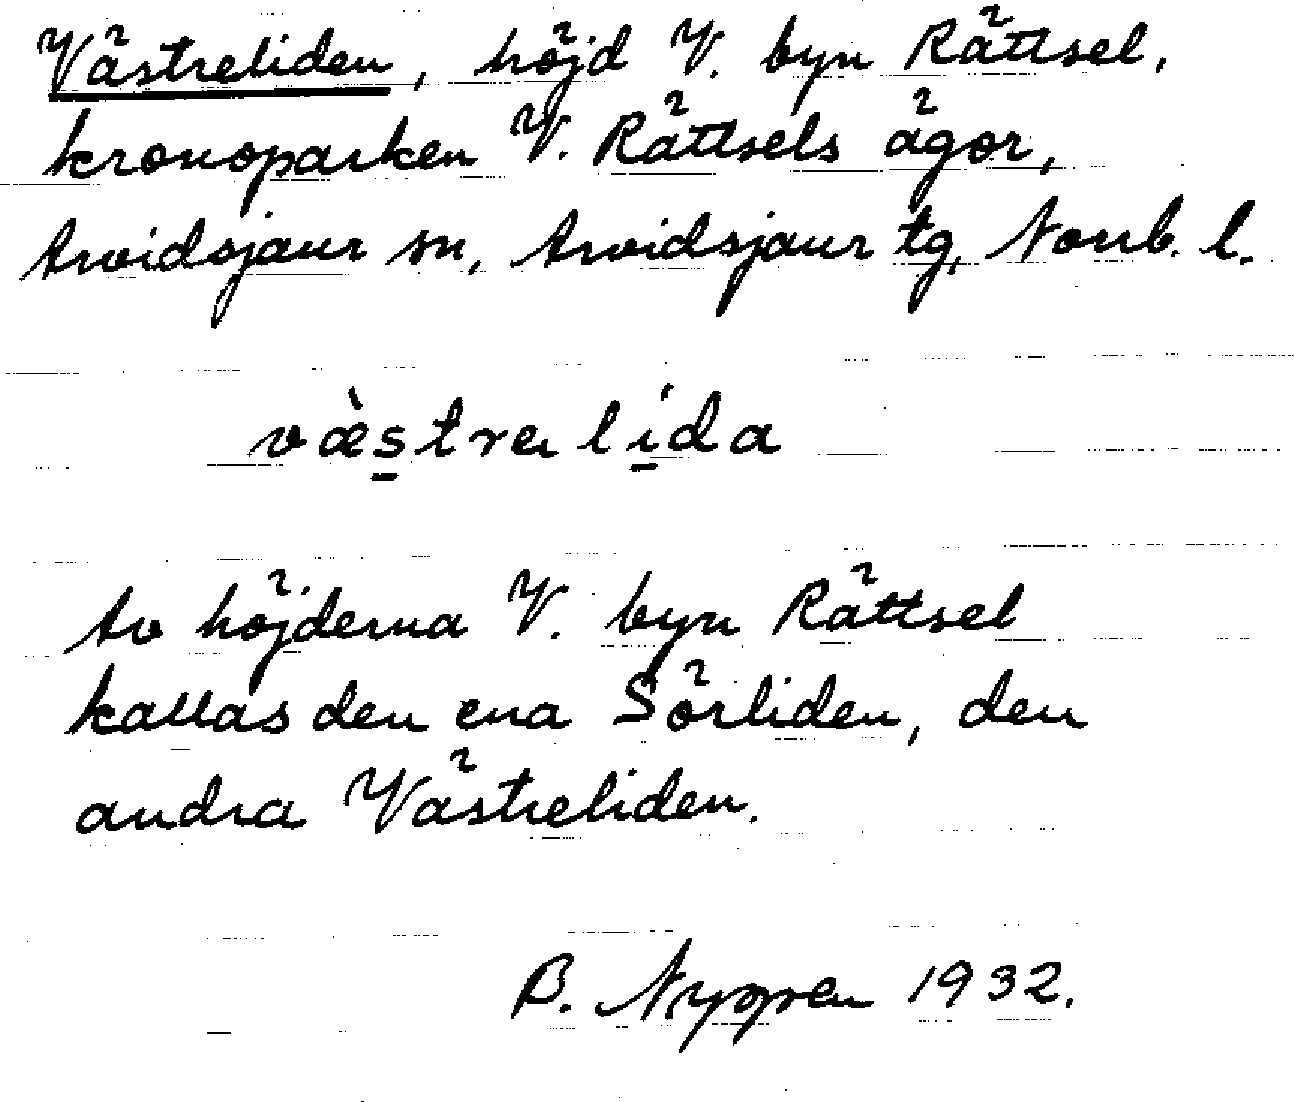 Västreliden, höjd V. byn Rättsel,
kronoparken V. Rättsels ägor,
Arvidsjaur sn, Arvidsjaur tg, Norrb. l.
væ̀strɐlı́da
Av höjderna V. byn Rättsel
kallas den ena Sörliden, den
andra Västreliden.
B. Nygren 1932.